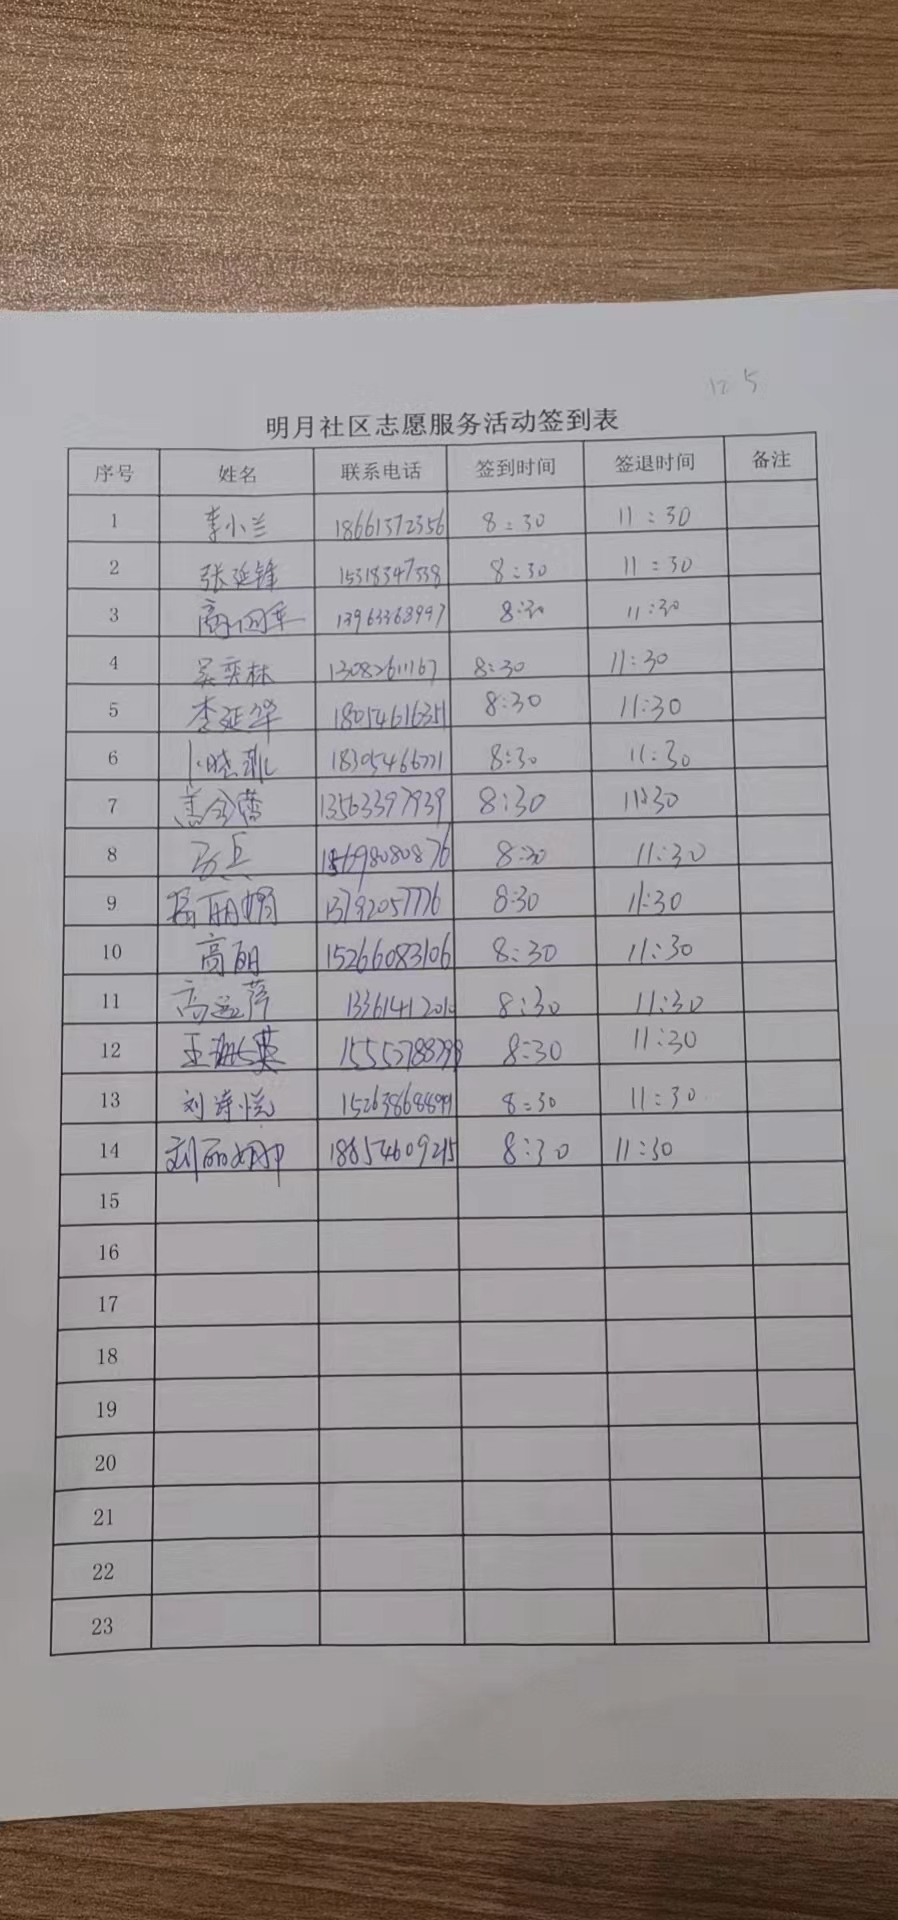 12 5
明月社区志愿服务活动签到表
序号 姓名 联系电话 签到时间 签退时间 备注
1 李小兰 18661372356 8:30 11:30
2 张延锋 15318347338 8:30 11:30
3 13963363997 8:30 11:30
4 吴奕林 13082611167 8:30 11:30
5 李延华 18054616351 8:30 11:30
6 18305466771 8:30 11:30
7 13563397939 8:30 11:30
8 15698080876 8:30 11:30
9 13792057776 8:30 11:30
10 高明 15266083106 8:30 11:30
11 高运萍 13361412010 8:30 11:30
12 8:30 11:30
13 刘诗悦 15263868899 8:30 11:30
14 刘丽娜 18854609215 8:30 11:30
15
16
17
18
19
20
21
22
23